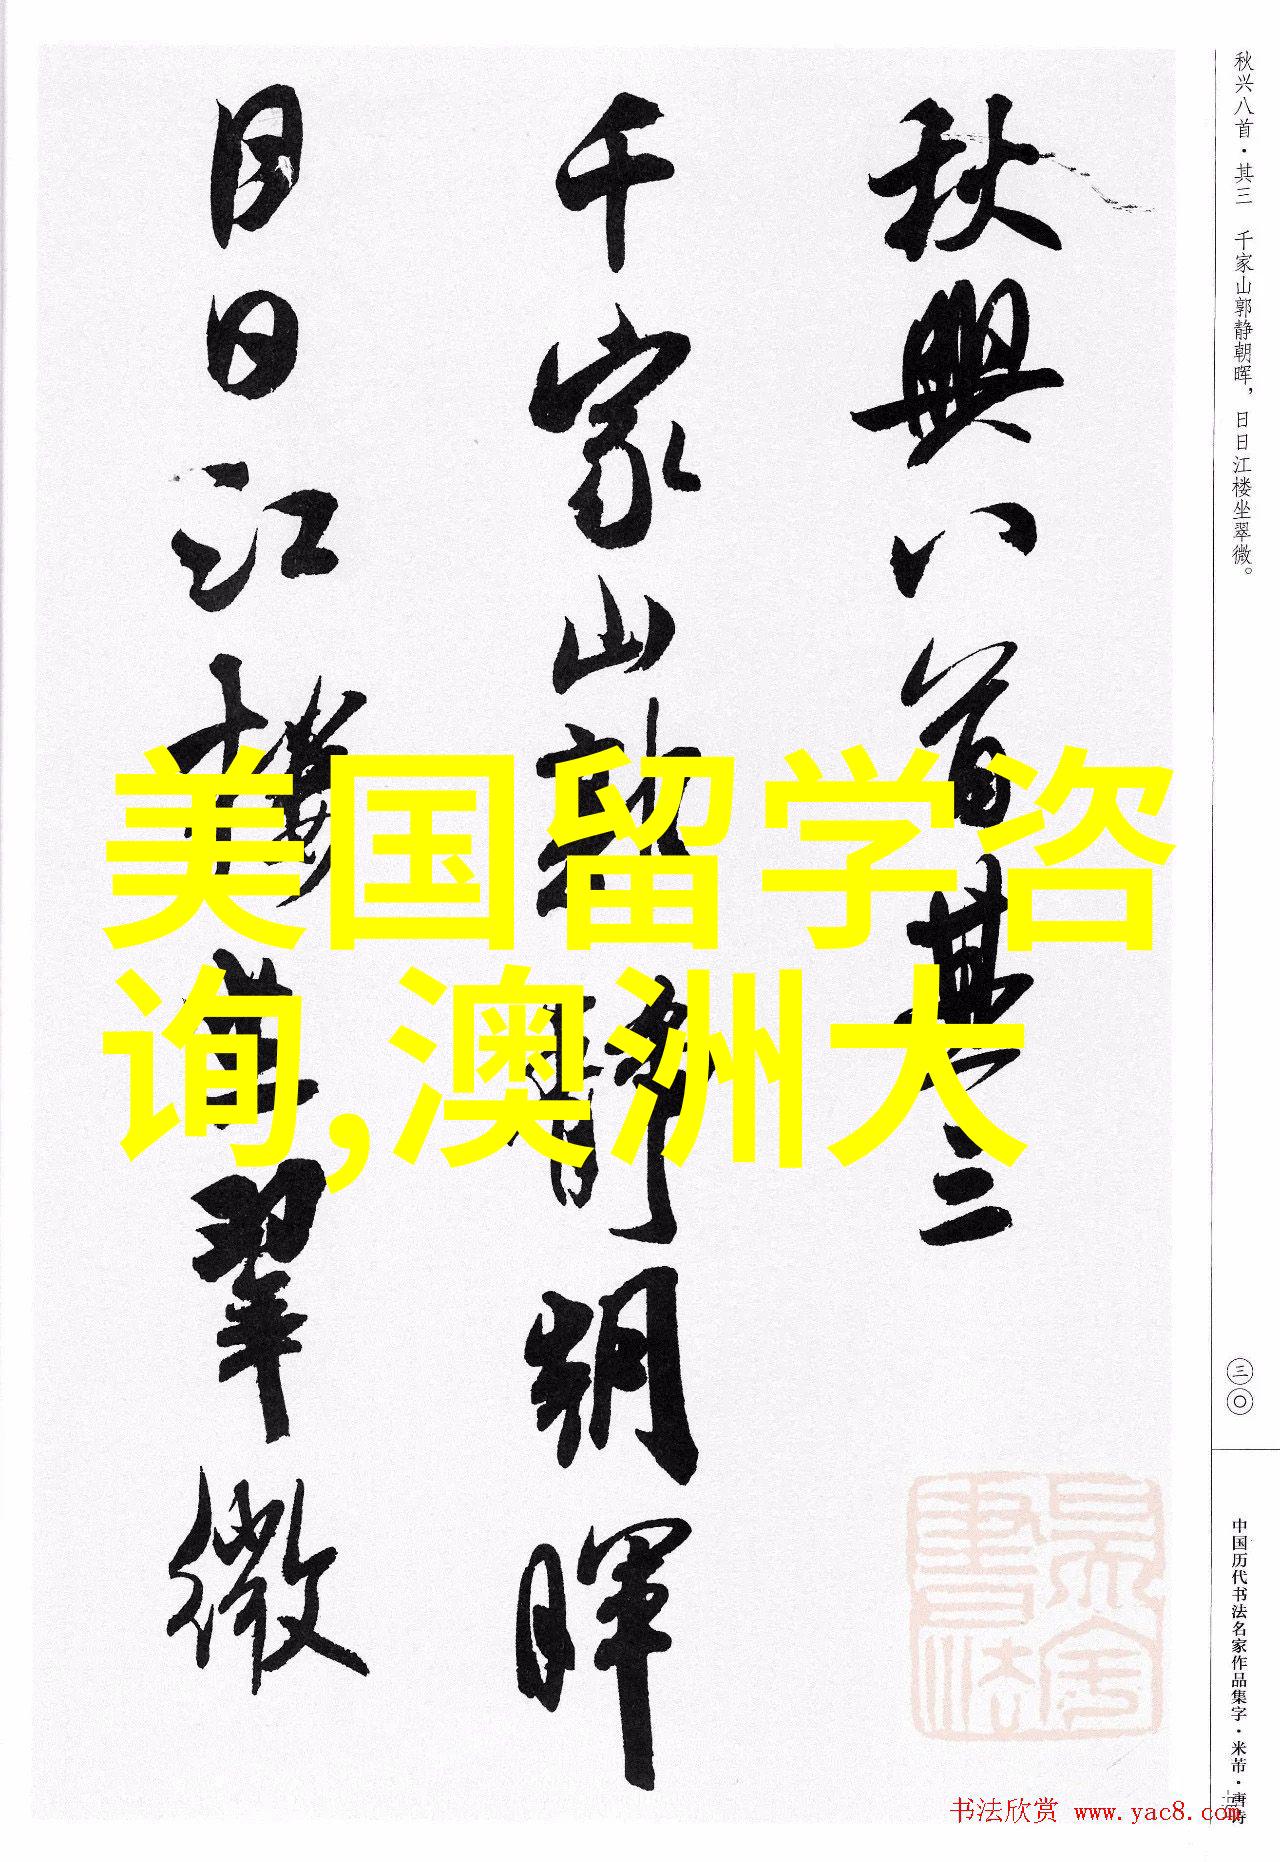 秋興八首其三
千家山郭静朝暉
日日江樓坐翠微
美国留学咨
询,澳洲大
秋兴八首·其三 千家山郭静朝晖，日日江楼坐翠微。
三〇
中国历代书法名家作品集字·米芾·唐诗
书法欣赏 www.yac8.com